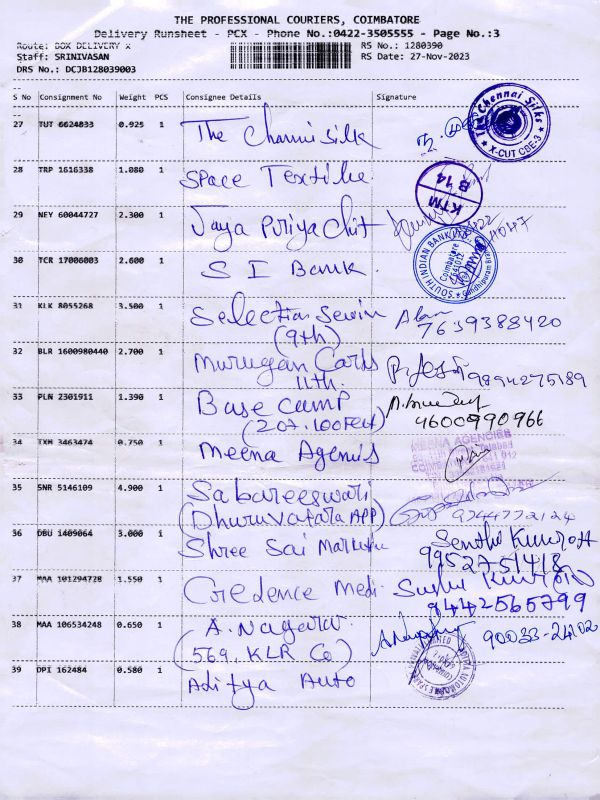 THE PROFESSIONAL COURIERS, COIMBATORE
Delivery Runsheet - PCX - Phone No.:0422-3505555 - Page No.:3
Route: BOX DELIVERY x
RS No.: 1280390
Staff: SRINIVASAN
RS Date: 27-Nov-2023
DRS No.: DCJB128039003
S No Consignment No Weight PCS Consignee Details Signature
27 TUT 6624833 0.925 1 The Chennai Silk
The Chennai Silks
X-CUT CBE-3
28 TRP 1616338 1.080 1 Space Textile
KTM
B 14
29 NEY 60044727 2.300 1 Jaya Priya Chit
30 TCR 17006003 2.600 1 S I Bank
SOUTH INDIAN BANK LTD.
Coimbatore
641012
31 KLK 8055268 3.500 1 Selection Sewin
(9th)
7639388420
32 BLR 1600980440 2.700 1 Murugan Cards
11th.
9894275189
33 PLN 2301911 1.390 1 Base camp
(207. 100 Feet)
9600990966
34 TXM 3463474 0.750 1 Meena Agencies
MEENA AGENCIES
35 SNR 5146109 4.900 1 Sabareeswari
(Dhuruvatara APP)
9744772124
36 DBU 1409064 3.000 1 Shree Sai Marketin
Senthil Kumar
9952751418
37 MAA 101294728 1.550 1 Credence Medi
9442565799
38 MAA 106534248 0.650 1 A. Nagaraj
(569. KLR Co)
90033-24102
39 DPI 162484 0.580 1 Aditya Auto